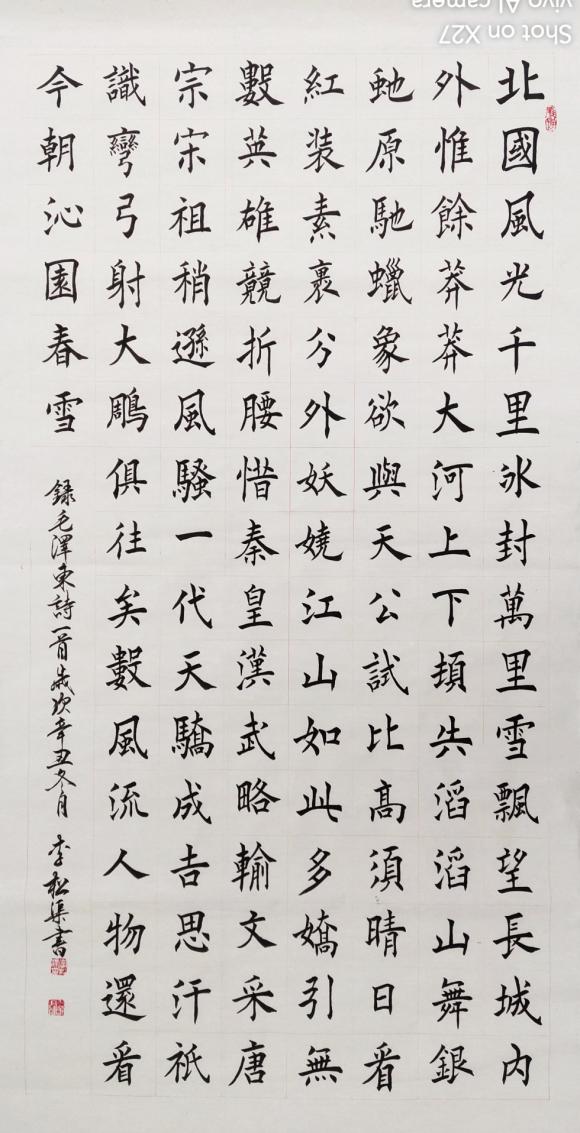 北國風光千里冰封萬里雪飄望長城内
外惟餘莽莽大河上下頓失滔滔山舞銀
虵原馳蠟象欲與天公試比高須晴日看
紅装素裹分外妖嬈江山如此多嬌引無
數英雄競折腰惜秦皇漢武略輸文采唐
宗宋祖稍遜風騷一代天驕成吉思汗祇
識彎弓射大鵰俱往矣數風流人物還看
今朝沁園春雪
錄毛澤東詩一首歲次辛丑冬月 李松渠書
Shot on X27
vivo AI camera